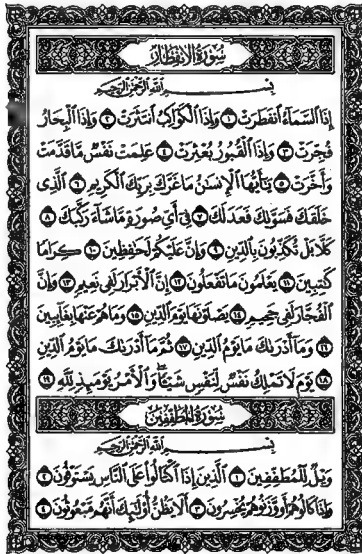 سُورَةُ الانفِطَارِ
بِسْمِ اللَّهِ الرَّحْمَٰنِ الرَّحِيمِ
إِذَا ٱلسَّمَآءُ ٱنفَطَرَتْ ۝١ وَإِذَا ٱلْكَوَاكِبُ ٱنتَثَرَتْ ۝٢ وَإِذَا ٱلْبِحَارُ
فُجِّرَتْ ۝٣ وَإِذَا ٱلْقُبُورُ بُعْثِرَتْ ۝٤ عَلِمَتْ نَفْسٌ مَّا قَدَّمَتْ
وَأَخَّرَتْ ۝٥ يَٰٓأَيُّهَا ٱلْإِنسَٰنُ مَا غَرَّكَ بِرَبِّكَ ٱلْكَرِيمِ ۝٦ ٱلَّذِى
خَلَقَكَ فَسَوَّىٰكَ فَعَدَلَكَ ۝٧ فِىٓ أَىِّ صُورَةٍ مَّا شَآءَ رَكَّبَكَ ۝٨
كَلَّا بَلْ تُكَذِّبُونَ بِٱلدِّينِ ۝٩ وَإِنَّ عَلَيْكُمْ لَحَٰفِظِينَ ۝١٠ كِرَامًا
كَٰتِبِينَ ۝١١ يَعْلَمُونَ مَا تَفْعَلُونَ ۝١٢ إِنَّ ٱلْأَبْرَارَ لَفِى نَعِيمٍ ۝١٣ وَإِنَّ
ٱلْفُجَّارَ لَفِى جَحِيمٍ ۝١٤ يَصْلَوْنَهَا يَوْمَ ٱلدِّينِ ۝١٥ وَمَا هُمْ عَنْهَا بِغَآئِبِينَ
۝١٦ وَمَآ أَدْرَىٰكَ مَا يَوْمُ ٱلدِّينِ ۝١٧ ثُمَّ مَآ أَدْرَىٰكَ مَا يَوْمُ ٱلدِّينِ
۝١٨ يَوْمَ لَا تَمْلِكُ نَفْسٌ لِّنَفْسٍ شَيْـًٔا وَٱلْأَمْرُ يَوْمَئِذٍ لِّلَّهِ ۝١٩
سُورَةُ المُطَفِّفِينَ
بِسْمِ اللَّهِ الرَّحْمَٰنِ الرَّحِيمِ
وَيْلٌ لِّلْمُطَفِّفِينَ ۝١ ٱلَّذِينَ إِذَا ٱكْتَالُوا۟ عَلَى ٱلنَّاسِ يَسْتَوْفُونَ ۝٢
وَإِذَا كَالُوهُمْ أَو وَّزَنُوهُمْ يُخْسِرُونَ ۝٣ أَلَا يَظُنُّ أُو۟لَٰٓئِكَ أَنَّهُم مَّبْعُوثُونَ ۝٤